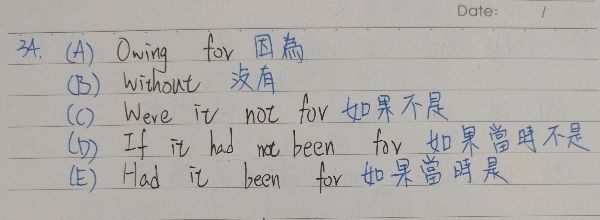 Date: /
34. (A) Owing for 因為
(B) without 沒有
(C) Were it not for 如果不是
(D) If it had not been for 如果當時不是
(E) Had it been for 如果當時是